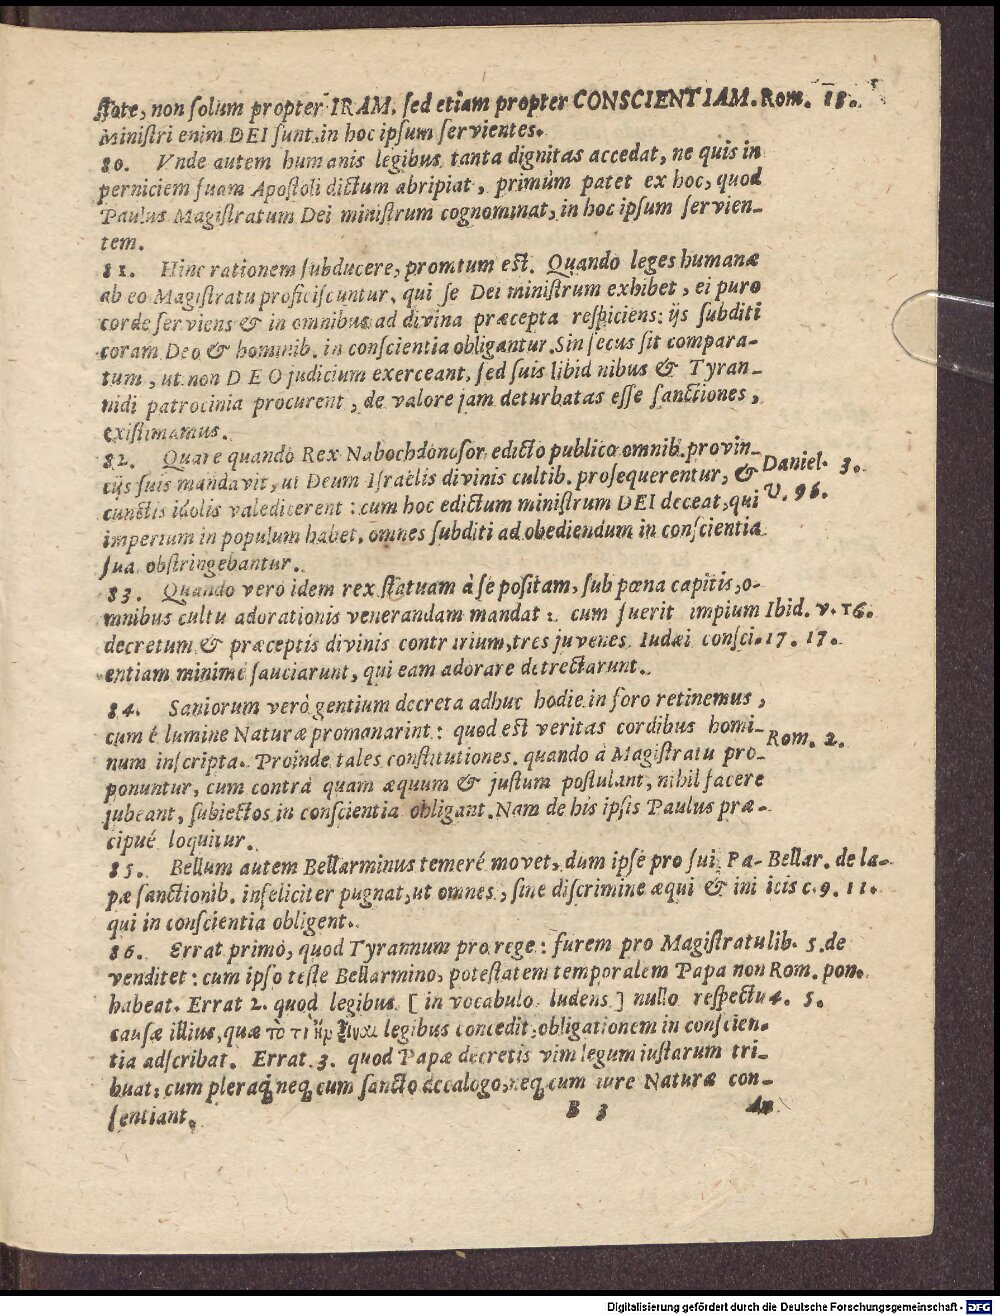 ſtote, non ſolum propter IRAM, ſed etiam propter CONSCIENTIAM. Rom. 13.
Miniſtri enim DEI ſunt, in hoc ipſum ſervientes.
80. Vnde autem humanis legibus tanta dignitas accedat, ne quis in
perniciem ſuam Apoſtoli dictum abripiat, primùm patet ex hoc, quod
Paulus Magiſtratum Dei miniſtrum cognominat, in hoc ipſum ſervien-
tem.
81. Hinc rationem ſubducere, promtum eſt. Quando leges humanæ
ab eo Magiſtratu proficiſcuntur, qui ſe Dei miniſtrum exhibet, ei puro
corde ſerviens & in omnibus ad divina præcepta reſpiciens: ijs ſubditi
coram Deo & hominib. in conſcientia obligantur. Sin ſecus ſit compara-
tum, ut non DEO judicium exerceant, ſed ſuis libidnibus & Tyran-
nidi patrocinia procurent, de valore jam deturbatas eſſe ſanctiones,
exiſtimamus.
82. Quare quando Rex Nabochdonoſor edicto publico omnib. provin-
cijs ſuis mandavit, ut Deum Iſraëlis divinis cultib. proſequerentur, & Daniel. 3.
cunctis idolis valedicerent: cum hoc edictum miniſtrum DEI deceat, qui V. 96.
imperium in populum habet, omnes ſubditi ad obediendum in conſcientia
ſua obſtringebantur.
83. Quando verò idem rex ſtatuam à ſe poſitam, ſub pœna capitis, o-
mnibus cultu adorationis venerandam mandat: cum fuerit impium Ibid. v. 16.
decretum & præceptis divinis contrarium, tres juvenes Iudæi conſci- 17. 17.
entiam minimè ſauciarunt, qui eam adorare detrectarunt.
84. Saniorum verò gentium decreta adhuc hodie in foro retinemus,
cum è lumine Naturæ promanarint: quod eſt veritas cordibus homi- Rom. 2.
num inſcripta. Proinde tales conſtitutiones, quando à Magiſtratu pro-
ponuntur, cum contrà quam æquum & juſtum poſtulant, nihil facere
jubeant, ſubiectos in conſcientia obligant. Nam de his ipſis Paulus præ-
cipué loquitur.
85. Bellum autem Bellarminus temeré movet, dum ipſe pro ſui Pa- Bellar. de la-
pæ ſanctionib. infeliciter pugnat, ut omnes, ſine diſcrimine æqui & ini icis c. 9. 11.
qui in conſcientia obligent.
86. Errat primò, quod Tyrannum pro rege: furem pro Magiſtratu lib. 5. de
venditet: cum ipſo teſte Bellarmino, poteſtatem temporalem Papa non Rom. pon.
habeat. Errat 2. quod legibus [in vocabulo ludens] nullo reſpectu 4. 5.
cauſæ illius, quæ τὸ τί legibus concedit, obligationem in conſcien-
tia adſcribat. Errat 3. quod Papæ decretis vim legum iuſtarum tri-
buat: cum pleraq́ neq́ cum ſancto decalogo, neq́ cum iure Naturæ con-
ſentiant.
B 3 An
Digitalisierung gefördert durch die Deutsche Forschungsgemeinschaft - DFG